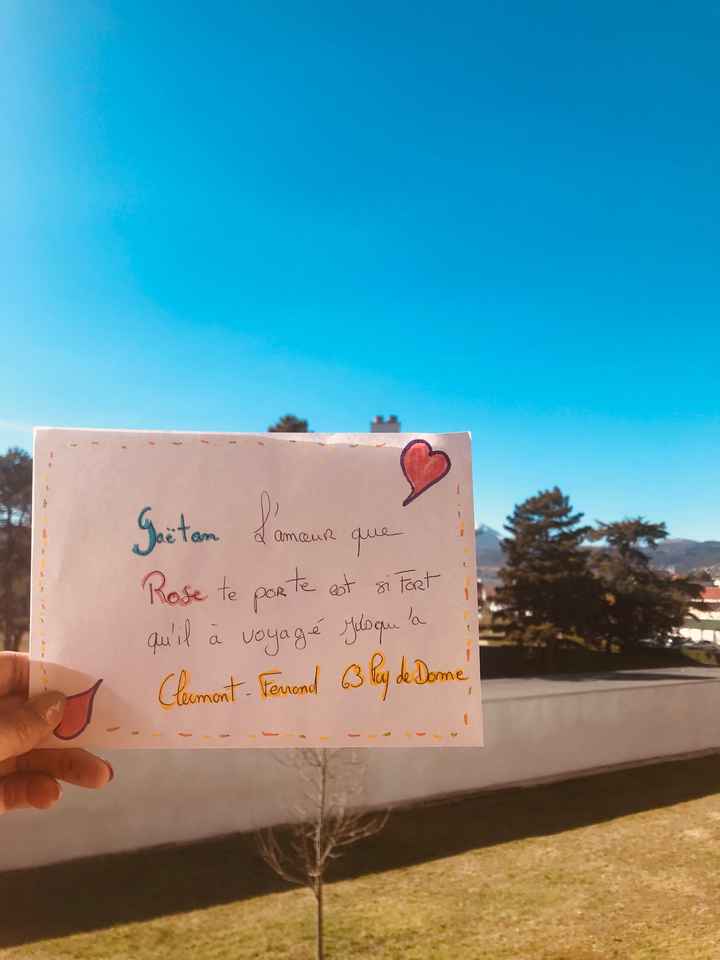 Gaëtan L'amour que
Rose te porte est si fort
qu'il à voyagé jusqu'a
Clermont-Ferrand 63 Puy de Dome